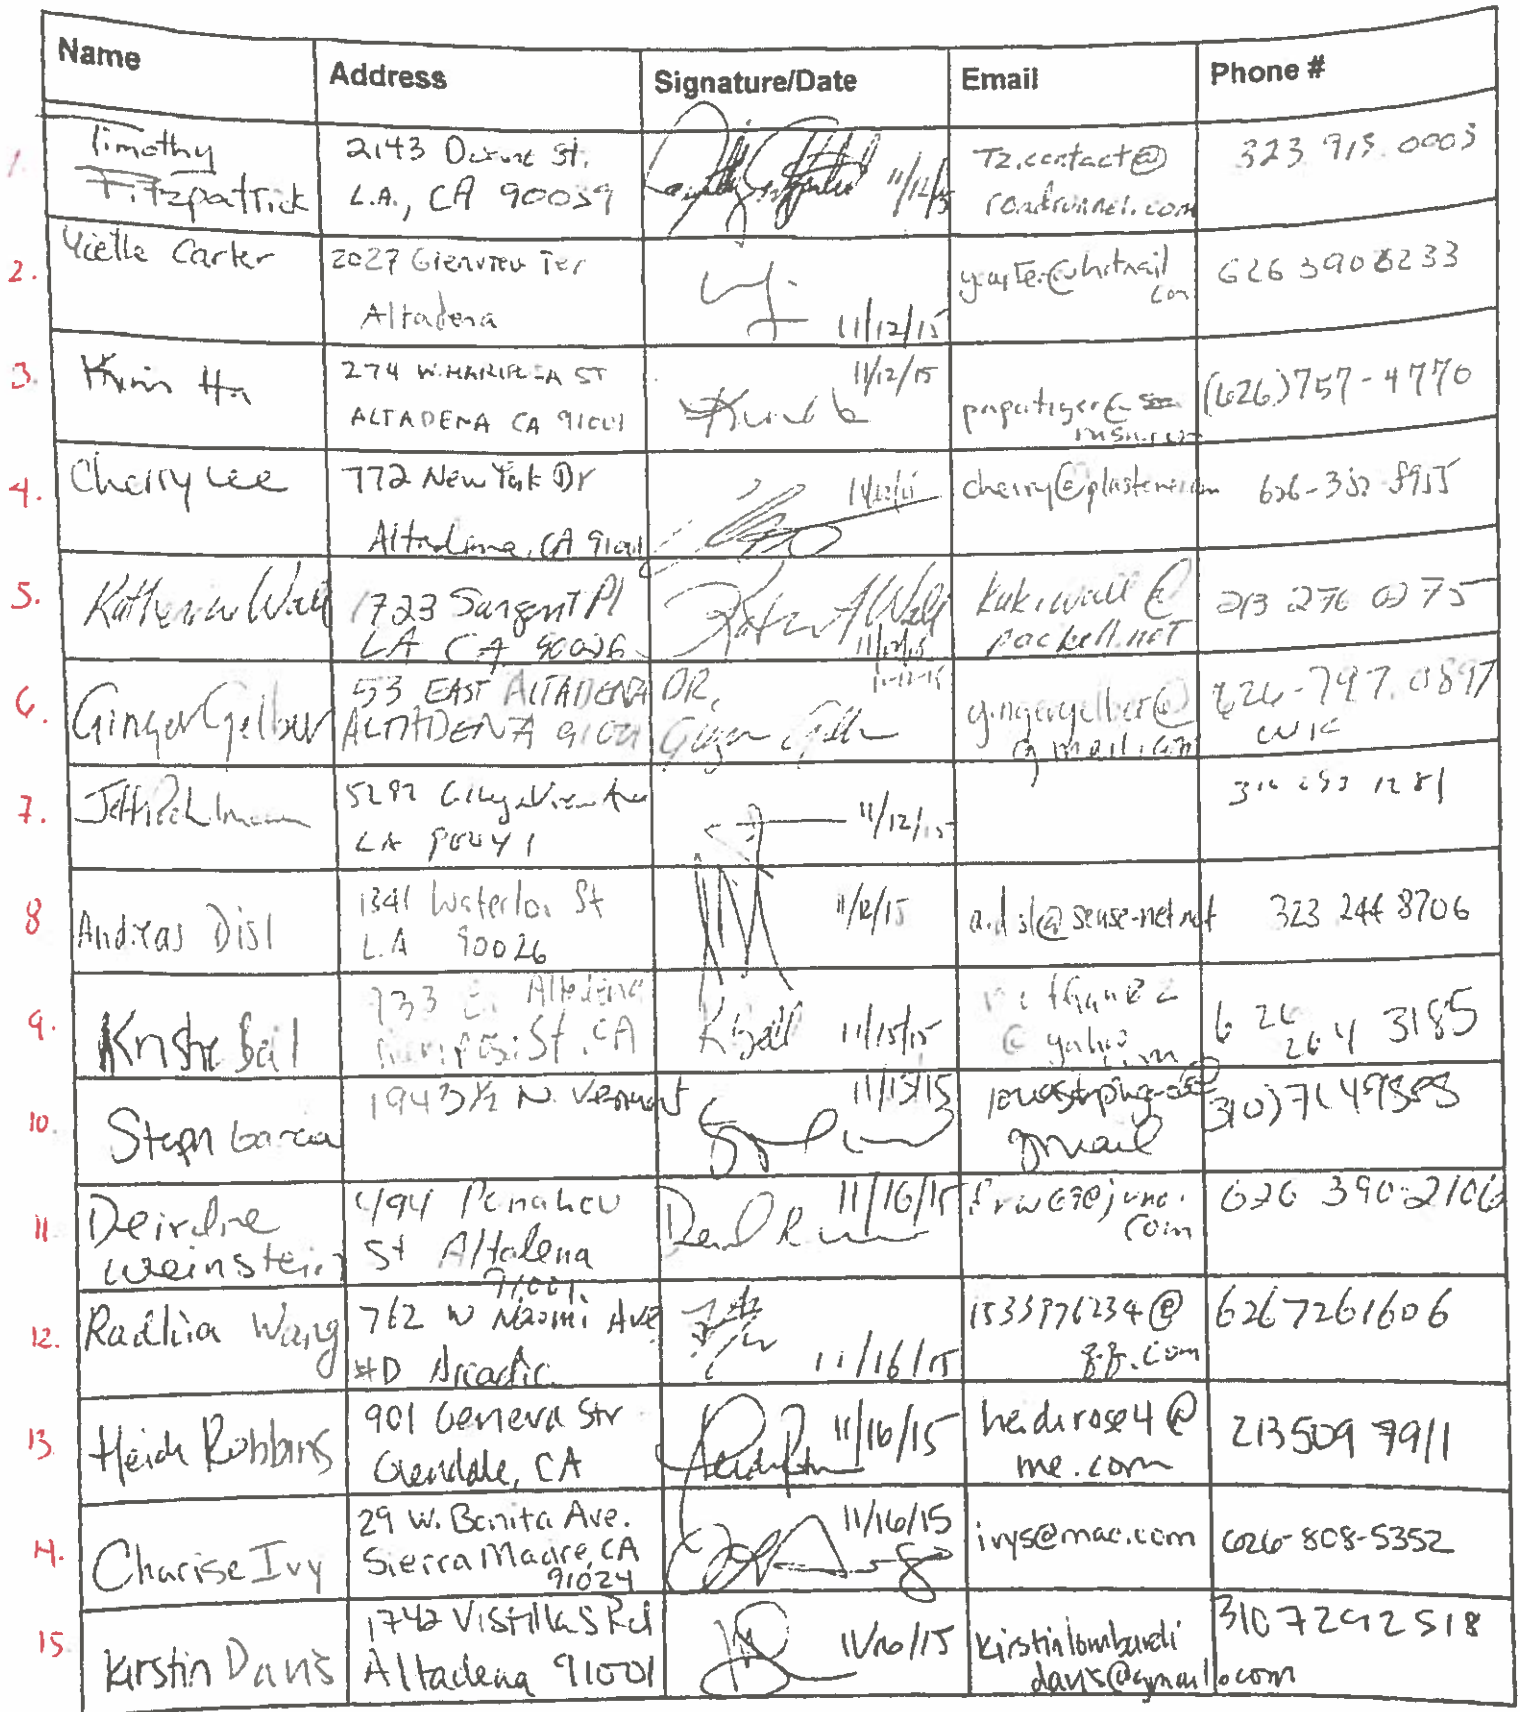 Name Address Signature/Date Email Phone #
1. Timothy Fitzpatrick
2143 St.
L.A., CA 90039
11/12/15
Tz.contact@
roadrunner.com
323 913 0003
2. Carter
2027 Glenview Ter
Altadena
11/12/15
626 390 8233
3. Kim Ha
274 W. ST
ALTADENA CA 91001
11/12/15
papatiger@
msn.com
(626)757-4770
4. Cherry Lee
772 New York Dr
Altadena, CA 91001
cherry@
5. Katherine Wall
1723 Sargent Pl
LA CA 90026
11/12/15
kukiwall@
pacbell.net
213 276 0275
6. Ginger Gelber
53 EAST ALTADENA DR,
ALTADENA 91001
gingergelber@
gmail.com
626-797.0897
7. Jeff
LA 90041
11/12/15
8 Andreas Disl
1341 Waterloo St
L.A 90026
11/12/15
a.disl@sense-net.net
323 244 8706
9. Kristie Bail
933 E. Altadena
Mariposa St. CA
KBail 11/15/15
@ yahoo
.com
626
264 3185
10. Steph Garcia
1943 1/2 N. Vermont
11/15/15
gmail
11 Deirdre
Weinstein
494 St Altadena
91001.
11/16/15
626 390-2106
12. Wang
762 W Naomi Ave
#D Arcadia
11/16/15
1533976234@
qq.com
6267261606
13 Heidi Robbins
901 Geneva Str
Glendale, CA
11/16/15
heidirose4@
me.com
213 509 7911
14. Charise Ivy
29 W. Bonita Ave.
Sierra Madre, CA
91024
11/16/15
ivys@mac.com
626-808-5352
15. Kirstin Davis
1742 Rd
Altadena 91001
11/16/15
kirstinlombardi
davis@gmail.com
310 7292518